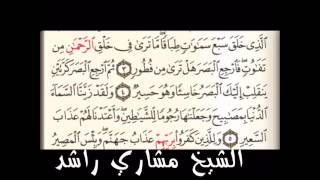 ٱلَّذِى خَلَقَ سَبْعَ سَمَٰوَٰتٍ طِبَاقًا مَّا تَرَىٰ فِى خَلْقِ ٱلرَّحْمَٰنِ مِن
تَفَٰوُتٍ فَٱرْجِعِ ٱلْبَصَرَ هَلْ تَرَىٰ مِن فُطُورٍ ٣ ثُمَّ ٱرْجِعِ ٱلْبَصَرَ كَرَّتَيْنِ
يَنقَلِبْ إِلَيْكَ ٱلْبَصَرُ خَاسِئًا وَهُوَ حَسِيرٌ ٤ وَلَقَدْ زَيَّنَّا ٱلسَّمَآءَ
ٱلدُّنْيَا بِمَصَٰبِيحَ وَجَعَلْنَٰهَا رُجُومًا لِّلشَّيَٰطِينِ وَأَعْتَدْنَا لَهُمْ عَذَابَ
ٱلسَّعِيرِ ٥ وَلِلَّذِينَ كَفَرُوا۟ بِرَبِّهِمْ عَذَابُ جَهَنَّمَ وَبِئْسَ ٱلْمَصِيرُ
الشيخ مشاري راشد